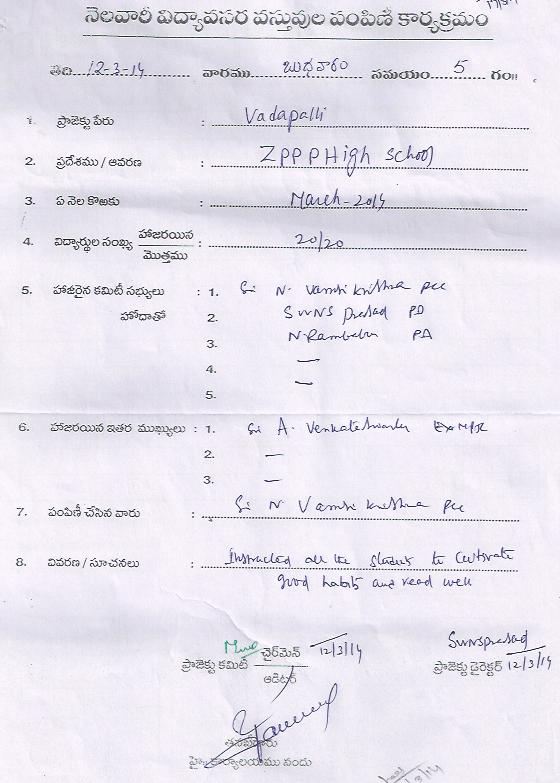 నెలవారీ విద్యావసర వస్తువుల పంపిణీ కార్యక్రమం
తేది 12-3-14 వారము బుధవారం సమయం 5 గం॥
1. ప్రాజెక్టు పేరు : Vadapalli
2. ప్రదేశము / ఆవరణ : ZPPP High School
3. ఏ నెల కొఱకు : March-2014
4. విద్యార్థుల సంఖ్య హాజరయిన / మొత్తము : 20/20
5. హాజరైన కమిటీ సభ్యులు : 1. Sri N. Vamsi Krishna pcc
హోదాతో 2. SVVNS Prasad PD
3. N. Rambabu PA
4. —
5. —
6. హాజరయిన ఇతర ముఖ్యులు : 1. Sri A. Venkateswarlu
2. —
3. —
7. పంపిణీ చేసిన వారు : Sri N Vamsi Krishna pcc
8. వివరణ / సూచనలు : Instructed all the students to cultivate
good habits and read well
ప్రాజెక్టు కమిటీ చైర్‌మెన్ / ఆడిటర్ 12/3/14
SVVNSprasad
ప్రాజెక్టు డైరెక్టర్ 12/3/14
హై కార్యాలయము నందు